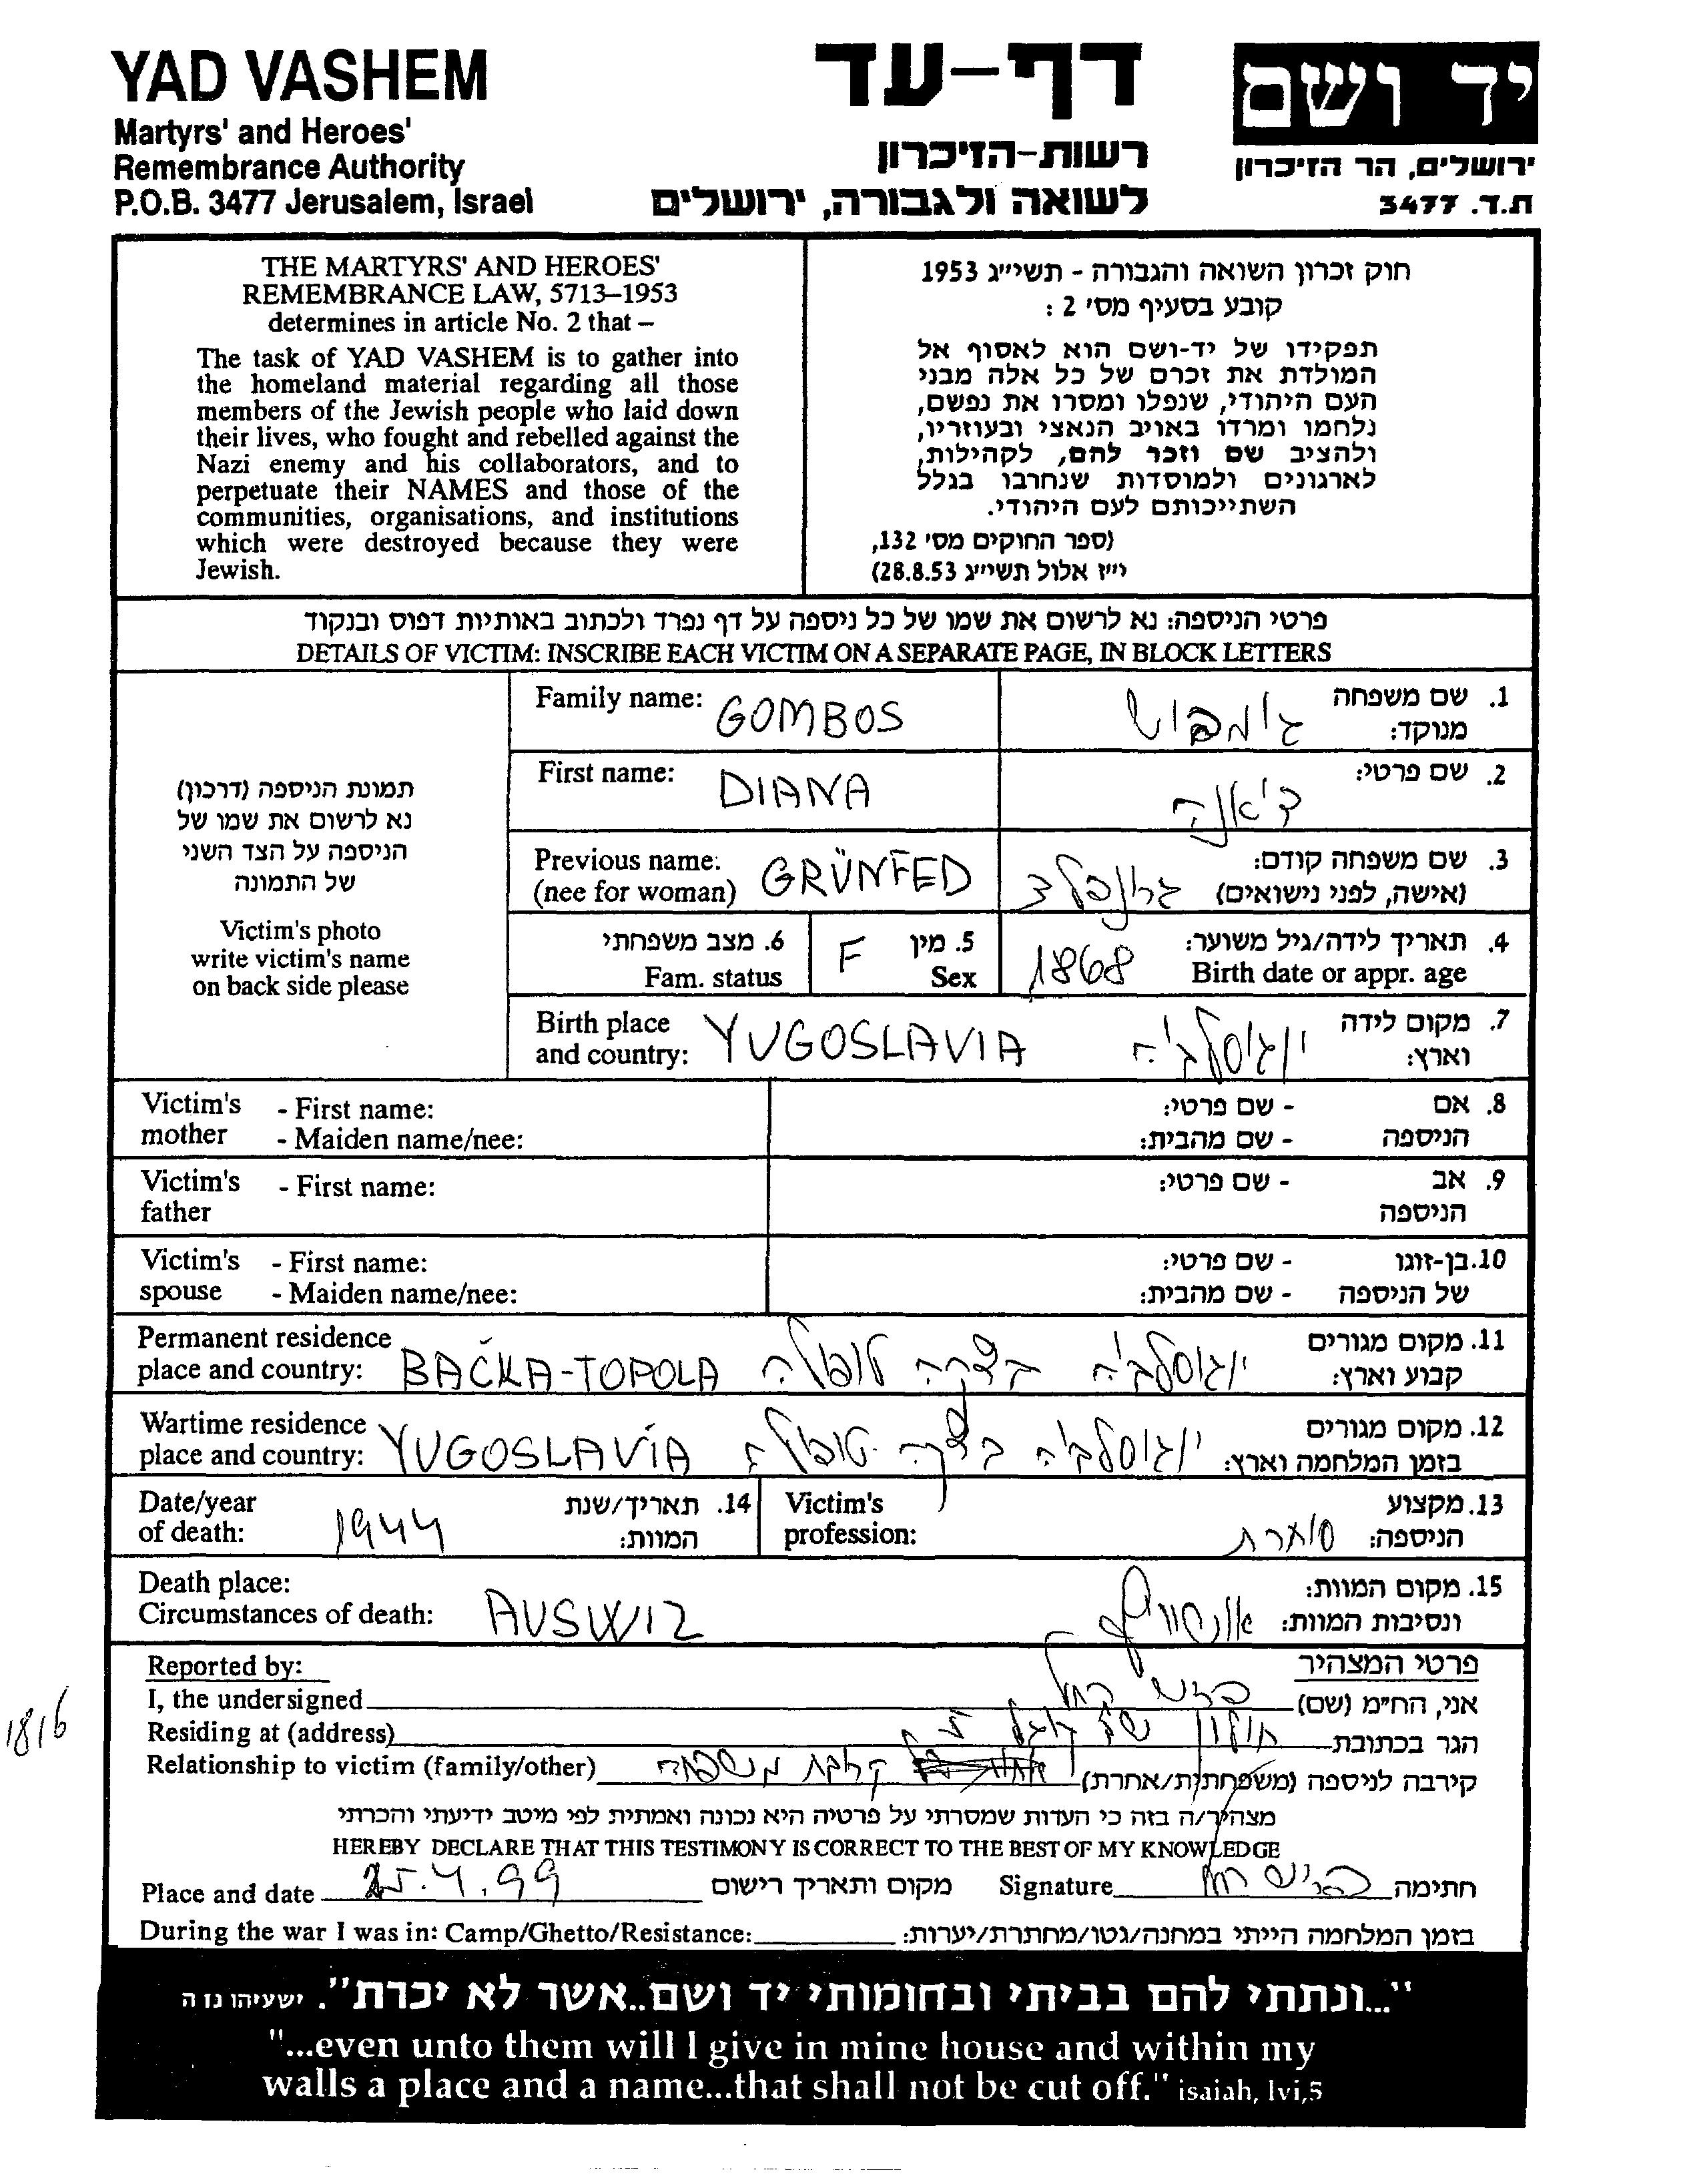 YAD VASHEM
Martyrs' and Heroes'
Remembrance Authority
P.O.B. 3477 Jerusalem, Israel
דף-עד
רשות-הזיכרון
לשואה ולגבורה, ירושלים
יד ושם
ירושלים, הר הזיכרון
ת.ד. 3477
THE MARTYRS' AND HEROES'
REMEMBRANCE LAW, 5713–1953
determines in article No. 2 that –
The task of YAD VASHEM is to gather into
the homeland material regarding all those
members of the Jewish people who laid down
their lives, who fought and rebelled against the
Nazi enemy and his collaborators, and to
perpetuate their NAMES and those of the
communities, organisations, and institutions
which were destroyed because they were
Jewish.
חוק זכרון השואה והגבורה - תשי״ג 1953
קובע בסעיף מס׳ 2 :
תפקידו של יד-ושם הוא לאסוף אל
המולדת את זכרם של כל אלה מבני
העם היהודי, שנפלו ומסרו את נפשם,
נלחמו ומרדו באויב הנאצי ובעוזריו,
ולהציב שם וזכר להם, לקהילות,
לארגונים ולמוסדות שנחרבו בגלל
השתייכותם לעם היהודי.
(ספר החוקים מס׳ 132,
י״ז אלול תשי״ג 28.8.53)
פרטי הניספה: נא לרשום את שמו של כל ניספה על דף נפרד ולכתוב באותיות דפוס ובנקוד
DETAILS OF VICTIM: INSCRIBE EACH VICTIM ON A SEPARATE PAGE, IN BLOCK LETTERS
תמונת הניספה (דרכון)
נא לרשום את שמו של
הניספה על הצד השני
של התמונה
Victim's photo
write victim's name
on back side please
Family name: GOMBOS
1. שם משפחה
מנוקד: גומבוש
First name: DIANA
2. שם פרטי: דיאנה
Previous name: GRÜNFED
(nee for woman)
3. שם משפחה קודם:
(אישה, לפני נישואים) גרונפלד
6. מצב משפחתי
Fam. status
5. מין F
Sex
4. תאריך לידה/גיל משוער:
Birth date or appr. age 1868
Birth place
and country: YUGOSLAVIA
7. מקום לידה
וארץ: יוגוסלביה
Victim's mother - First name:
- Maiden name/nee:
8. אם הניספה - שם פרטי:
- שם מהבית:
Victim's father - First name:
9. אב הניספה - שם פרטי:
Victim's spouse - First name:
- Maiden name/nee:
10. בן-זוגו של הניספה - שם פרטי:
- שם מהבית:
Permanent residence
place and country: BAČKA-TOPOLA
11. מקום מגורים
קבוע וארץ: יוגוסלביה בצקה טופולה
Wartime residence
place and country: YUGOSLAVIA
12. מקום מגורים
בזמן המלחמה וארץ: יוגוסלביה בצקה טופולה
Date/year
of death: 1944
14. תאריך/שנת
המוות:
Victim's
profession:
13. מקצוע
הניספה: סוחרת
Death place:
Circumstances of death: AUSWIZ
15. מקום המוות:
ונסיבות המוות: אושוויץ
Reported by:
פרטי המצהיר
I, the undersigned
אני, הח״מ (שם) רחל
Residing at (address)
הגר בכתובת חולון
Relationship to victim (family/other)
קירבה לניספה (משפחתית/אחרת) קרבת משפחה
1816
מצהיר/ה בזה כי העדות שמסרתי על פרטיה היא נכונה ואמתית לפי מיטב ידיעתי והכרתי
HEREBY DECLARE THAT THIS TESTIMONY IS CORRECT TO THE BEST OF MY KNOWLEDGE
Place and date 25.4.99 מקום ותאריך רישום
Signature חתימה
During the war I was in: Camp/Ghetto/Resistance:
בזמן המלחמה הייתי במחנה/גטו/מחתרת/יערות:
"...ונתתי להם בביתי ובחומותי יד ושם..אשר לא יכרת". ישעיהו נו ה
"...even unto them will I give in mine house and within my
walls a place and a name...that shall not be cut off." isaiah, lvi,5